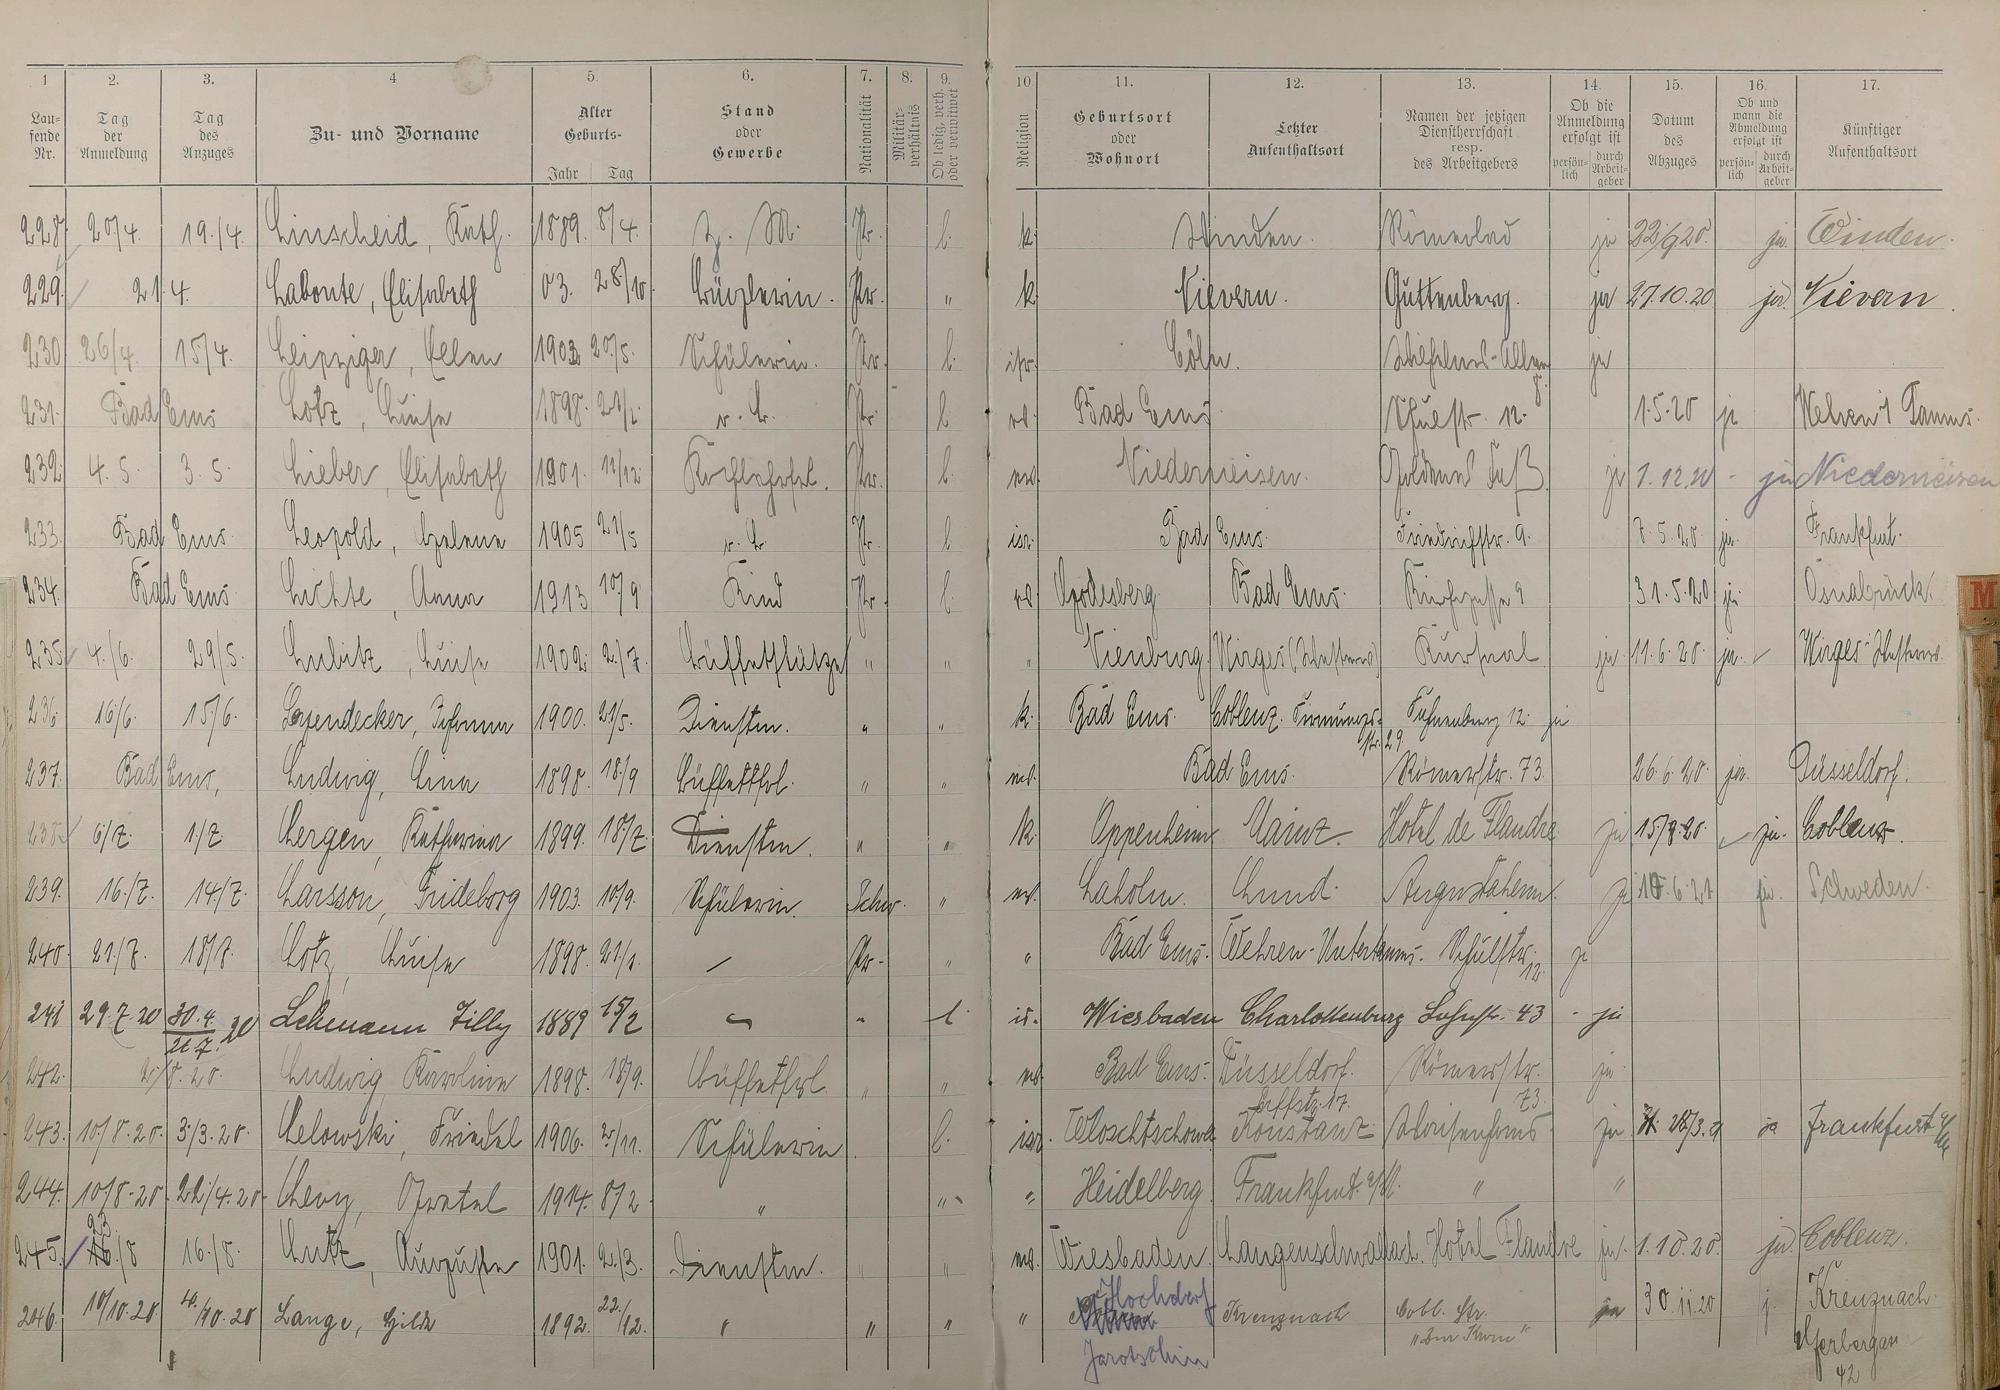 1 2. 3. 4 5. 6. 7. 8. 9. 10 11. 12. 13. 14. 15. 16. 17.
Laufende Nr. Tag der Anmeldung Tag des Anzuges Zu- und Vorname Alter Geburts- Jahr Tag Stand oder Gewerbe Nationalität Militärverhältnis Ob ledig, verh. oder verwitwet Religion Geburtsort oder Wohnort Letzter Aufenthaltsort Namen der jetzigen Dienstherrschaft resp. des Arbeitgebers Ob die Anmeldung erfolgt ist persönlich durch Arbeitgeber Datum des Abzuges Ob und wann die Abmeldung erfolgt ist persönlich durch Arbeitgeber Künftiger Aufenthaltsort
228 20/4. 19./4. Linscheid, Kath. 1889. 8/4. Pr. l. k. Winden. Römerbad ja 22/9 20. ja Winden.
229. 21.4. Labonte, Elisabeth 03. 28/10. Büglerin. Pr. " k. Nievern. Guttenberg. ja 27.10.20 ja Nievern.
230 26/4. 15/4. Leipziger, Ellen 1903 20/5. Schülerin. Pr. l. isr. Cöln. Wilhelms-Allee ja
231. Bad Ems Lotz, Luise 1898. 21/1. o. B. Pr. l. ev. Bad Ems Schulstr. 12. 1.5.20 ja Wehen i/ Taunus.
232. 4.5. 3.5. Lieber, Elisabeth 1901. 11/12. Pr. l. ev. Niederneisen. Goldenes Faß. ja 1.12.20 - ja Niederneisen
233. Bad Ems. Leopold, Helene 1905 21/5 o. B. Pr. l. isr. Bad Ems. Friedrichstr. 9. 7.5.20 ja. Frankfurt.
234. Bad Ems Lichte, Anna 1913 10/9 Kind Pr. l. ev. Godesberg Bad Ems. 9 31.5.20 ja. Osnabrück.
235. 4./6. 29/5. Lubitz, Luise 1902. 2./7. Büffetstütze " " " Nienburg. Wirges (Westerwd) Kursaal. ja 11.6.20. ja. Wirges-Westerwd.
236. 16/6. 15/6. Layendecker, Johanna 1900. 21/5. Dienstm. " " k. Bad Ems. Coblenz. Firmungstr. 29. Fahnenberg 12. ja
237. Bad Ems, Ludwig, Lina 1898. 18/9 Büffettfrl. " " ev. Bad Ems. Römerstr. 73. 26.6.20. ja. Düsseldorf.
238. 6/7. 1./7. Lergen, Katharina 1899. 18/7. Dienstm. " " k. Oppenheim Mainz. Hotel de Flandre ja 15/8.20. ja. Coblenz.
239. 16./7. 14/7. Larsson, Frideborg 1903. 10/9. Schülerin. Schw. " ev. Laholm. Lund. Augustaheim. ja 10.6.21 ja. Schweden.
240. 21/7. 18/7. Lotz, Luise 1898. 21/1. — Pr. " " Bad Ems. Wehen-Untertaunus. Schulstr. 12. ja
241 29.7.20 30.4. 20 21.7. Lehmann Tilly 1889 15/2 " l. is. Wiesbaden Charlottenburg Lahnstr. 43 - ja
242. 2/8.20. Ludwig, Karoline 1898. 18/9. Büffetfrl. " " ev. Bad Ems. Düsseldorf. Römerstr. 73. ja
243. 10/8.20. 3./3.20. Lelowski, Friedel 1906. 2./11. Schülerin l. isr. Konstanz Waisenhaus ja 28/3.21 ja Frankfurt a/M
244. 10/8.20. 22/4.20. Levy, Gretel 1914. 8/2. " " " Heidelberg. Frankfurt a/M. " "
245. 23/8 16./8. Lutz, Auguste 1901. 2./3. Dienstm. " " ev. Wiesbaden. Langenschwalbach. Hotel Flandre ja. 1.10.20. ja Coblenz.
246. 10/10.20 10.20 Lange, Hilde 1892. 22./12. " " " " Hochdorf Jarotschin Kreuznach Cobl. Str. "Zur Krone" ja 30.11.20 j. Kreuznach. 42